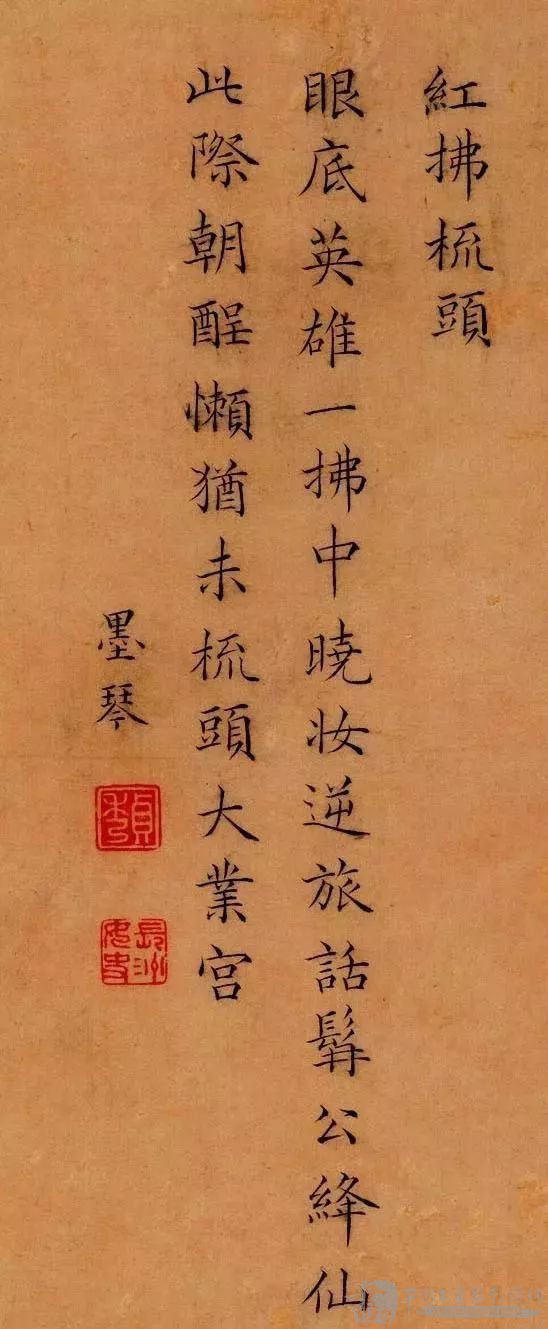 紅拂梳頭
眼底英雄一拂中暁妆逆旅話髯公絳仙
此際朝酲懶猶未梳頭大業宮
墨琴
貞秀